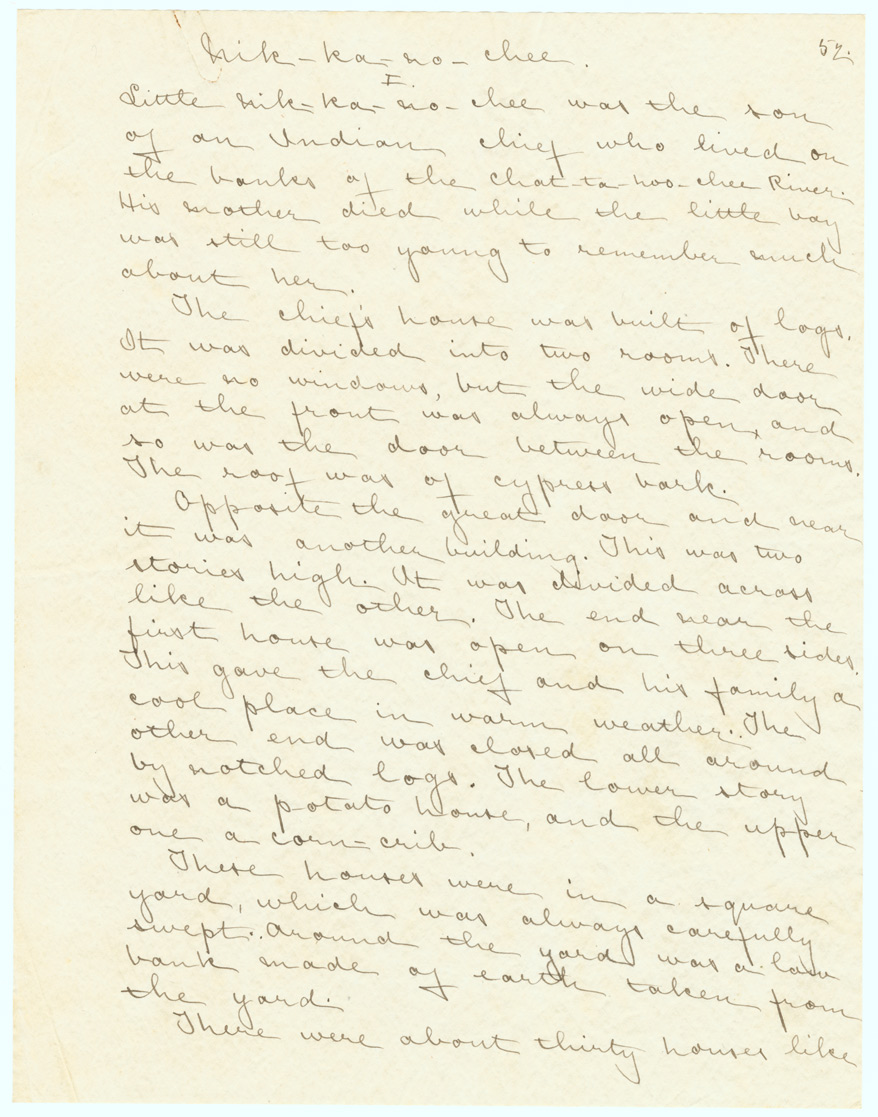 Nik-ka-no-chee.
52.
I.
Little Nik-ka-no-chee was the son
of an Indian chief who lived on
the banks of the Chat-ta-hoo-chee River.
His mother died while the little boy
was still too young to remember much
about her.
The chief's house was built of logs.
It was divided into two rooms. There
were no windows, but the wide door
at the front was always open, and
so was the door between the rooms.
The roof was of cypress bark.
Opposite the great door and near
it was another building. This was two
stories high. It was divided across
like the other. The end near the
first house was open on three sides.
This gave the chief and his family a
cool place in warm weather. The
other end was closed all around
by notched logs. The lower story
was a potato house, and the upper
one a corn-crib.
These houses were in a square
yard, which was always carefully
swept. Around the yard was a low
bank made of earth taken from
the yard.
There were about thirty houses like